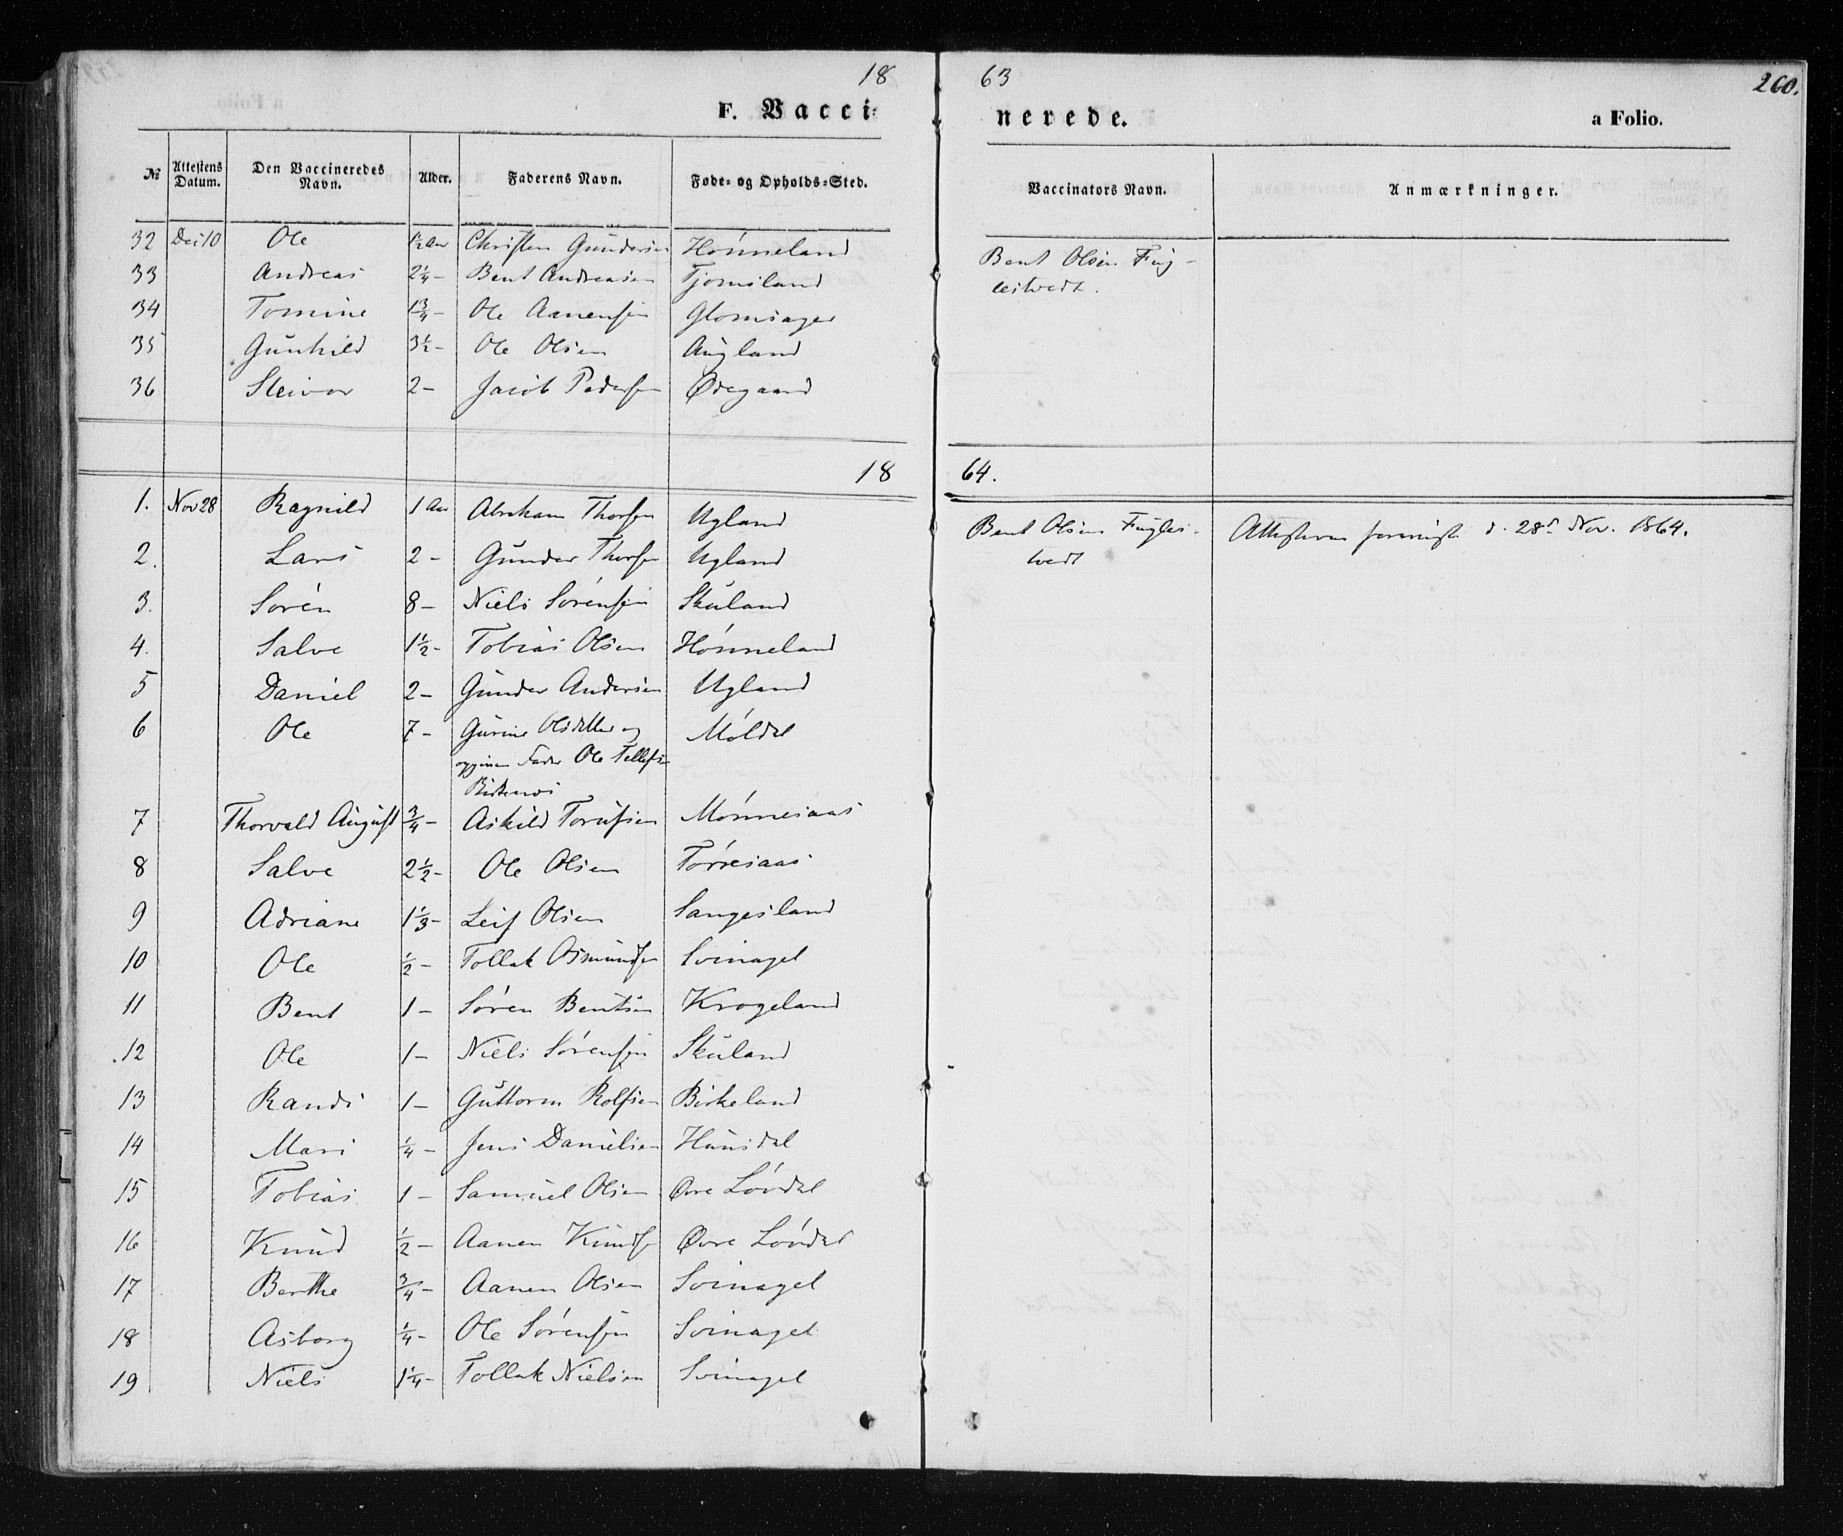 18 63 260.
F. Vaccinerede. a Folio.
№ Attestens Datum. Den Vaccineredes Navn. Alder. Faderens Navn. Føde- og Opholds-Sted. Vaccinators Navn. Anmærkninger.
32 Dec 10 Ole ½ Aar Christen Gundersen Hønneland Bent Olsen Fug-
33 Andreas 2¼ - Bent Andreasen Tjomsland lestvedt.
34 Tomine 1¾ - Ole Aanensen Glomsager
35 Gunhild 3½ - Ole Olsen Augland
36 Steivor 2 - Jacob Pedersen Ødegaard
18 64.
1. Nov 28 Ragnild 1 Aar Abraham Thorsen Ugland Bent Olsen Fugles- Attesten d. 28de Nov. 1864.
2. Lars 2 - Gunder Thorsen Ugland tvedt
3. Sørén 8 - Niels Sørensen Skuland
4. Salve 1½ - Tobias Olsen Hønneland
5 Daniel 2 - Gunder Andersen Ugland
6 Ole 7 - Gurine Olsdatter og Møldal
opgiven Fader Ole Tellefsen
Birkenes
7 Thorvald August ¾ - Askild Torjusen Mønnesaas
8 Salve 2½ - Ole Olsen Tørresaas
9 Adriane 1⅓ - Leif Olsen Sangesland
10 Ole ½ - Tollak Osmundsen Svinagel
11 Bent 1 - Søren Bentsen Krogeland
12 Ole 1 - Niels Sørensen Skuland
13 Randi 1 - Guttorm Rolfsen Birkeland
14 Mari ¼ - Jens Danielsen Hunsdal
15 Tobias 1 - Samuel Olsen Øvre Løvdal
16 Knud ½ - Aanen Knudsen Øvre Løvdal
17 Berthe ¾ - Aanen Olsen Svinagel
18 Asborg ¼ - Ole Sørensen Svinagel
19 Niels 1¼ - Tollak Nielsen Svinagel